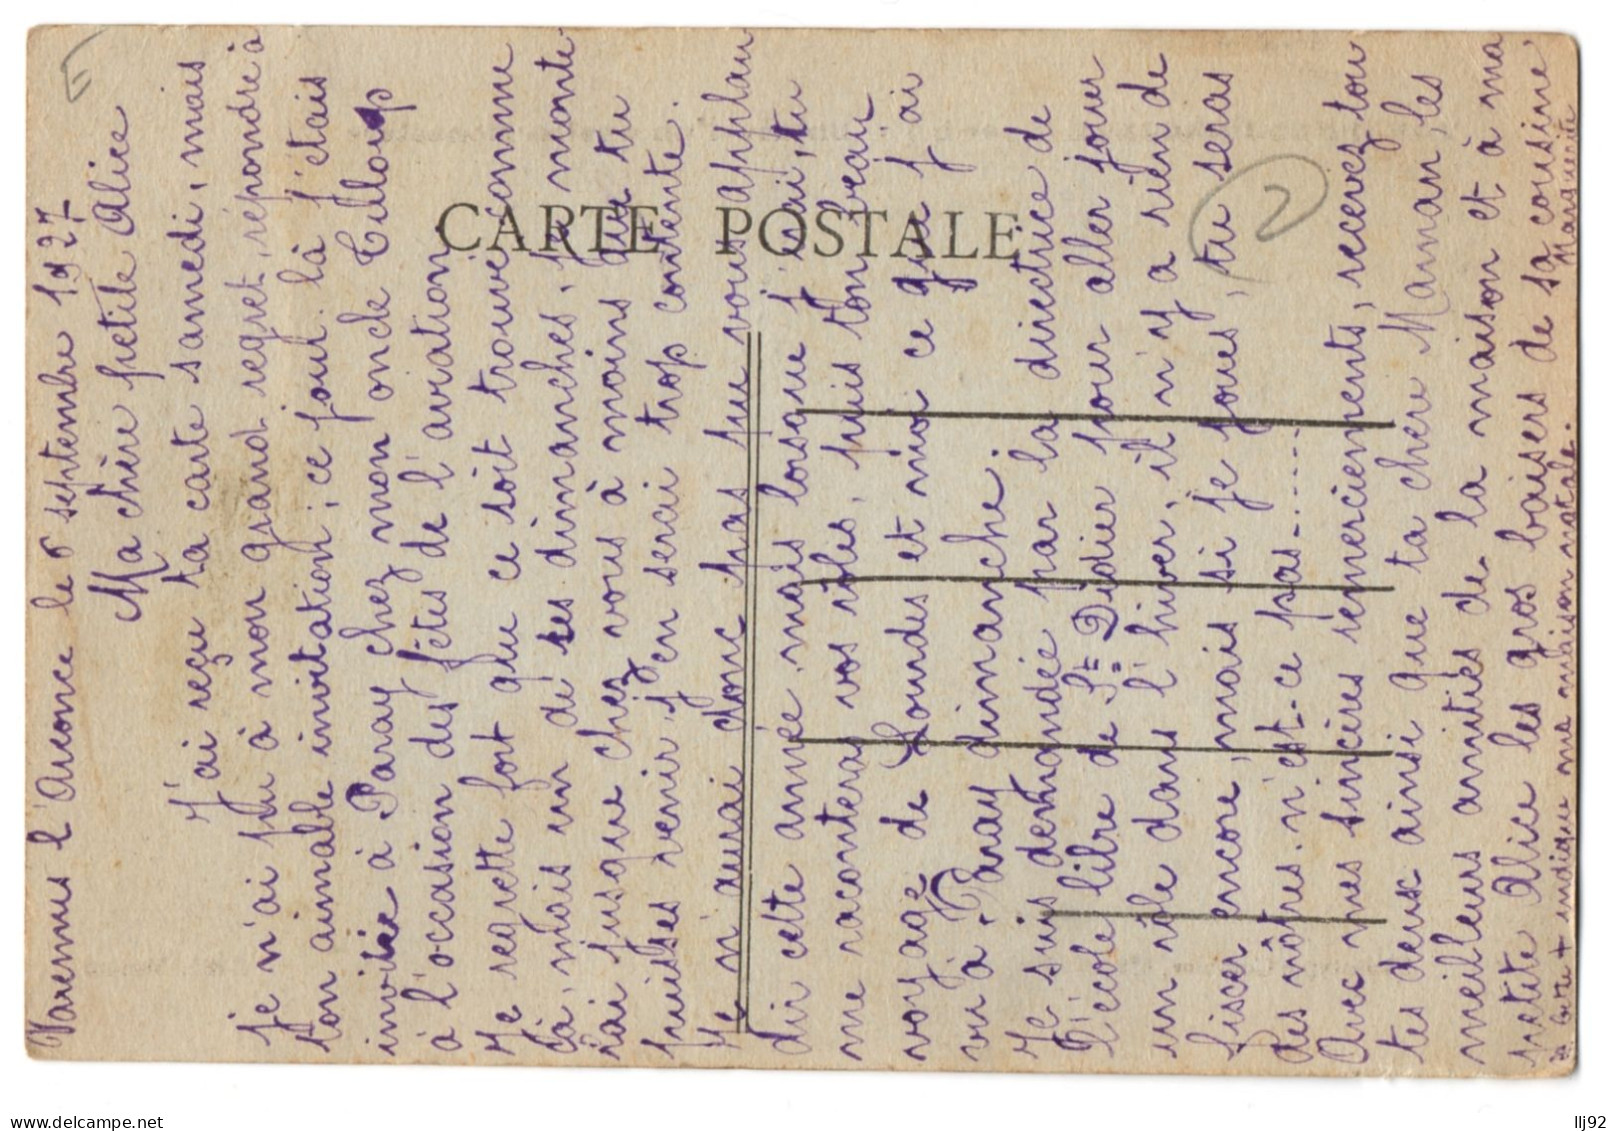 Varennes l'Arconce le 6 septembre 1927
Ma chère petite Alice
J'ai reçu ta carte samedi, mais
je n'ai pu à mon grand regret, répondre à
ton aimable invitation; ce jour là j'étais
invitée à Paray chez mon oncle Tilloup
à l'occasion des fêtes de l'aviation.
Je regrette fort que ce soit trouvé comme
ça, mais un de ses dimanches, je monte
rai jusque chez vous à moins que tu
puisses venir, j'en serai trop contente.
Je n'aurai donc pas pu vous applau
dir cette année mais lorsque j'irai, tu
me raconteras vos rôles, puis ton beau
voyage de Lourdes et moi ce que j'ai
vu à Paray dimanche.
Je suis demandée par la directrice de
l'école libre de St Didier pour aller jouer
un rôle dans l'hiver, il n'y a rien de
fixer encore, mais si je joues, tu seras
des nôtres n'est-ce pas........
Avec mes sincères remerciements, recevez tou
tes deux ainsi que ta chère Maman, les
meilleurs amitiés de la maison et à ma
petite Alice les gros baisers de sa cousine
Marguerite
la + indique ma maison natale.
CARTE POSTALE
2
delcampe.net
llj92